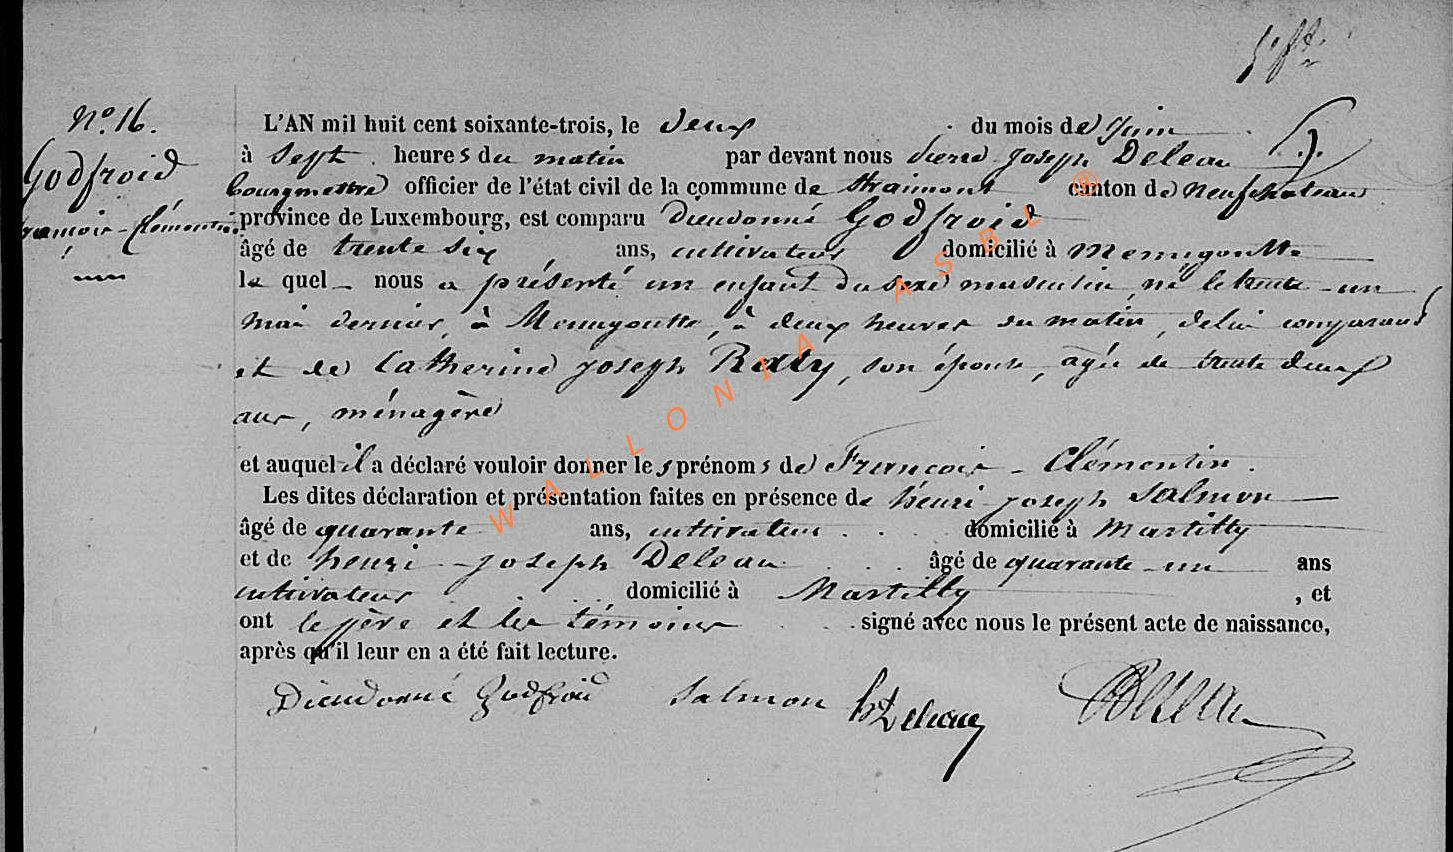 N.o 16.
Godfroid
François-Clémentin
L'AN mil huit cent soixante-trois, le deux du mois de Juin
à Sept heures du matin par devant nous Pierre Joseph Deleau
bourgmestre officier de l'état civil de la commune de Straimont canton de Neufchateau
province de Luxembourg, est comparu Dieudonné Godfroid
âgé de trente six ans, cultivateur domicilié à Menugoutte
le quel nous a présenté un enfant du sexe masculin, né le trente-un
mai dernier, à Menugoutte, à deux heures du matin, de lui comparant
et de Catherine Joseph Rály, son épouse, agée de trente deux
ans, ménagère
et auquel il a déclaré vouloir donner les prénoms de François-Clémentin.
Les dites déclaration et présentation faites en présence de henri joseph Salmon
âgé de quarante ans, cultivateur domicilié à Martilly
et de henri-joseph Deleau âgé de quarante-un ans
cultivateur domicilié à Martilly, et
ont le père et les témoins signé avec nous le présent acte de naissance,
après qu'il leur en a été fait lecture.
Dieudonné Godfroid Salmon h j Deleau Deleau
WALLONIA ASBL ®